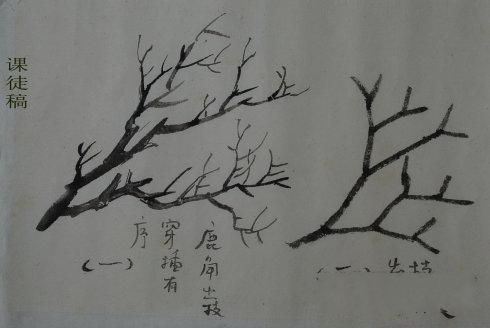 课徒稿
鹿角出枝
穿插有
序
(一)
(一)出枝